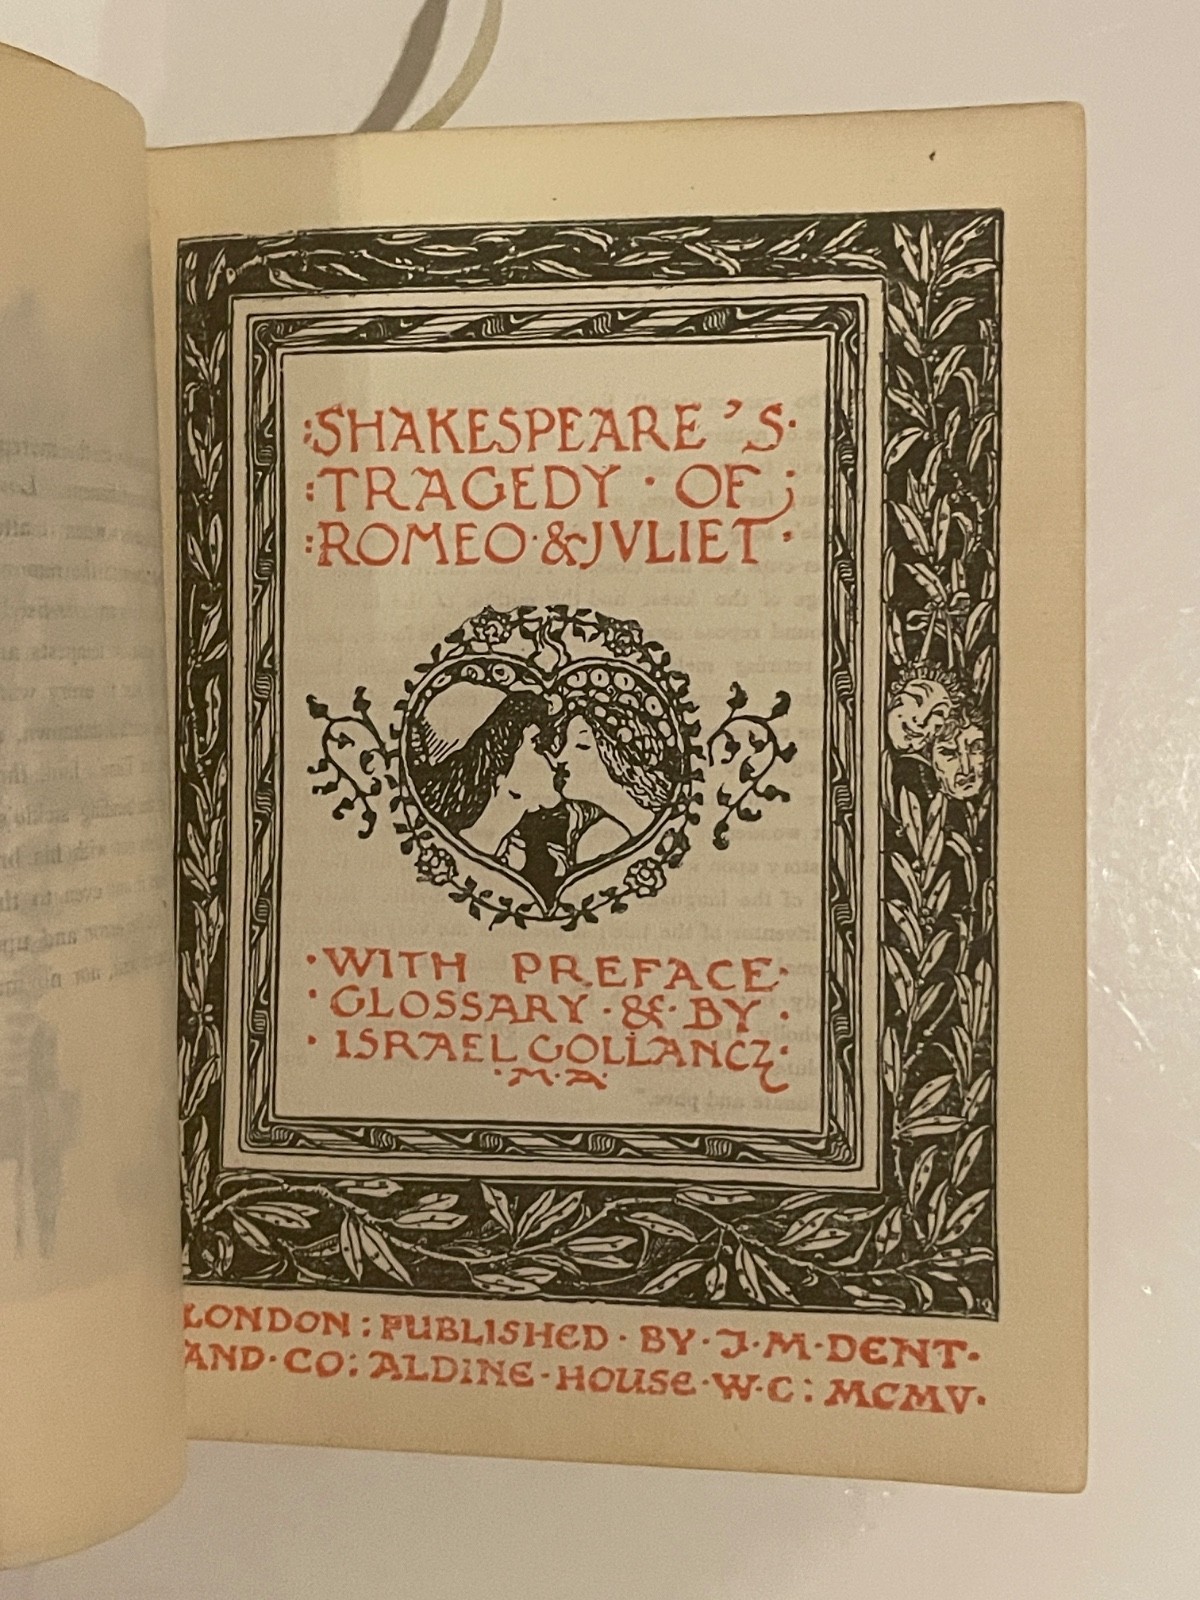 :SHAKESPEARE'S·
:TRAGEDY · OF;
:ROMEO·&JVLIET·
·WITH PREFACE·
·GLOSSARY·&·BY·
·ISRAEL GOLLANCZ·
·M·A·
LONDON : PUBLISHED · BY · J · M · DENT·
AND · CO: ALDINE · HOUSE · W · C : MCMV·